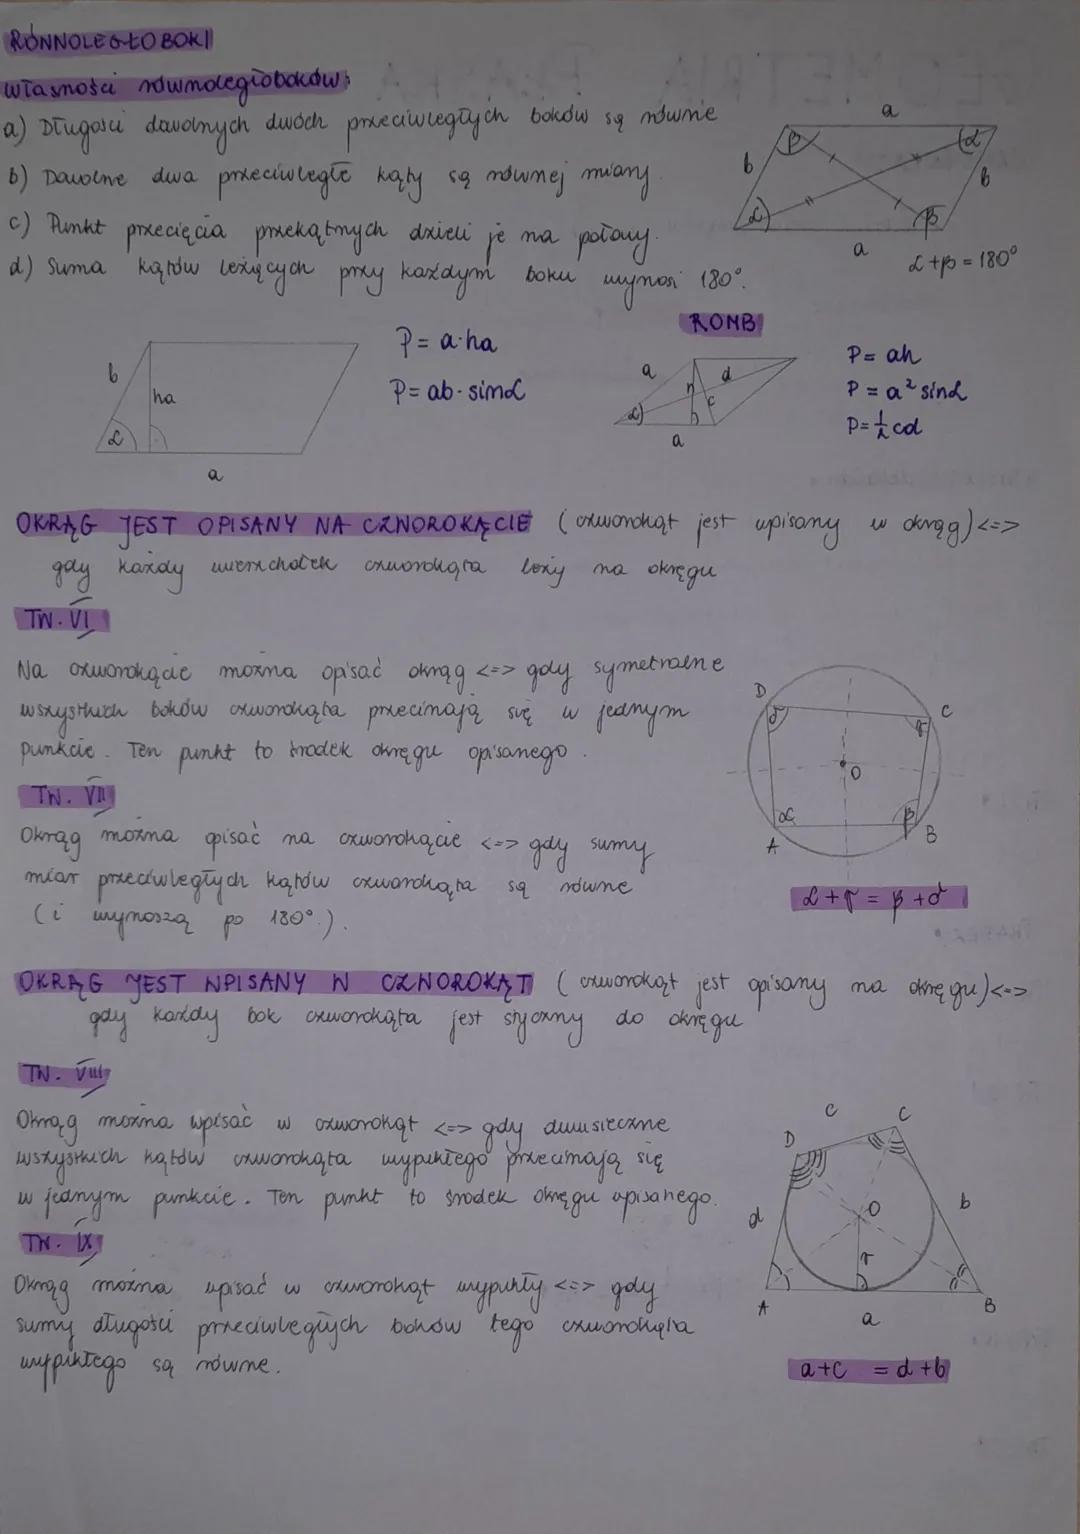 RÓWNOLEGŁOBOKI
własności równoległoboków:
a) Długości dowolnych dwóch przeciwległych boków są równe
b) Dowolne dwa przeciwległe kąty są równej miary.
c) Punkt przecięcia przekątnych dzieli je na połowy.
d) Suma kątów leżących przy każdym boku wynosi 180°.
a
β
α
b
b
α
β
a
α+β = 180°
b
ha
α
a
P = a·ha
P = ab·sinα
ROMB
a
d
h
c
α
a
P = ah
P = a² sinα
P = ½ cd
OKRĄG JEST OPISANY NA CZWOROKĄCIE (czworokąt jest wpisany w okrąg) <=>
gdy każdy wierzchołek czworokąta leży na okręgu
TW. VI
Na czworokącie można opisać okrąg <=> gdy symetralne
wszystkich boków czworokąta przecinają się w jednym
punkcie. Ten punkt to środek okręgu opisanego.
D
C
δ
γ
O
α
β
A
B
TW. VII
Okrąg można opisać na czworokącie <=> gdy sumy
miar przeciwległych kątów czworokąta są równe
(i wynoszą po 180°).
α+γ = β+δ
OKRĄG JEST WPISANY W CZWOROKĄT (czworokąt jest opisany na okręgu) <=>
gdy każdy bok czworokąta jest styczny do okręgu
TW. VIII
Okrąg można wpisać w czworokąt <=> gdy dwusieczne
wszystkich kątów czworokąta wypukłego przecinają się
w jednym punkcie. Ten punkt to środek okręgu wpisanego.
TW. IX
Okrąg można wpisać w czworokąt wypukły <=> gdy
sumy długości przeciwległych boków tego czworokąta
wypukłego są równe.
c
C
D
d
O
b
r
A
a
B
a+c = d+b